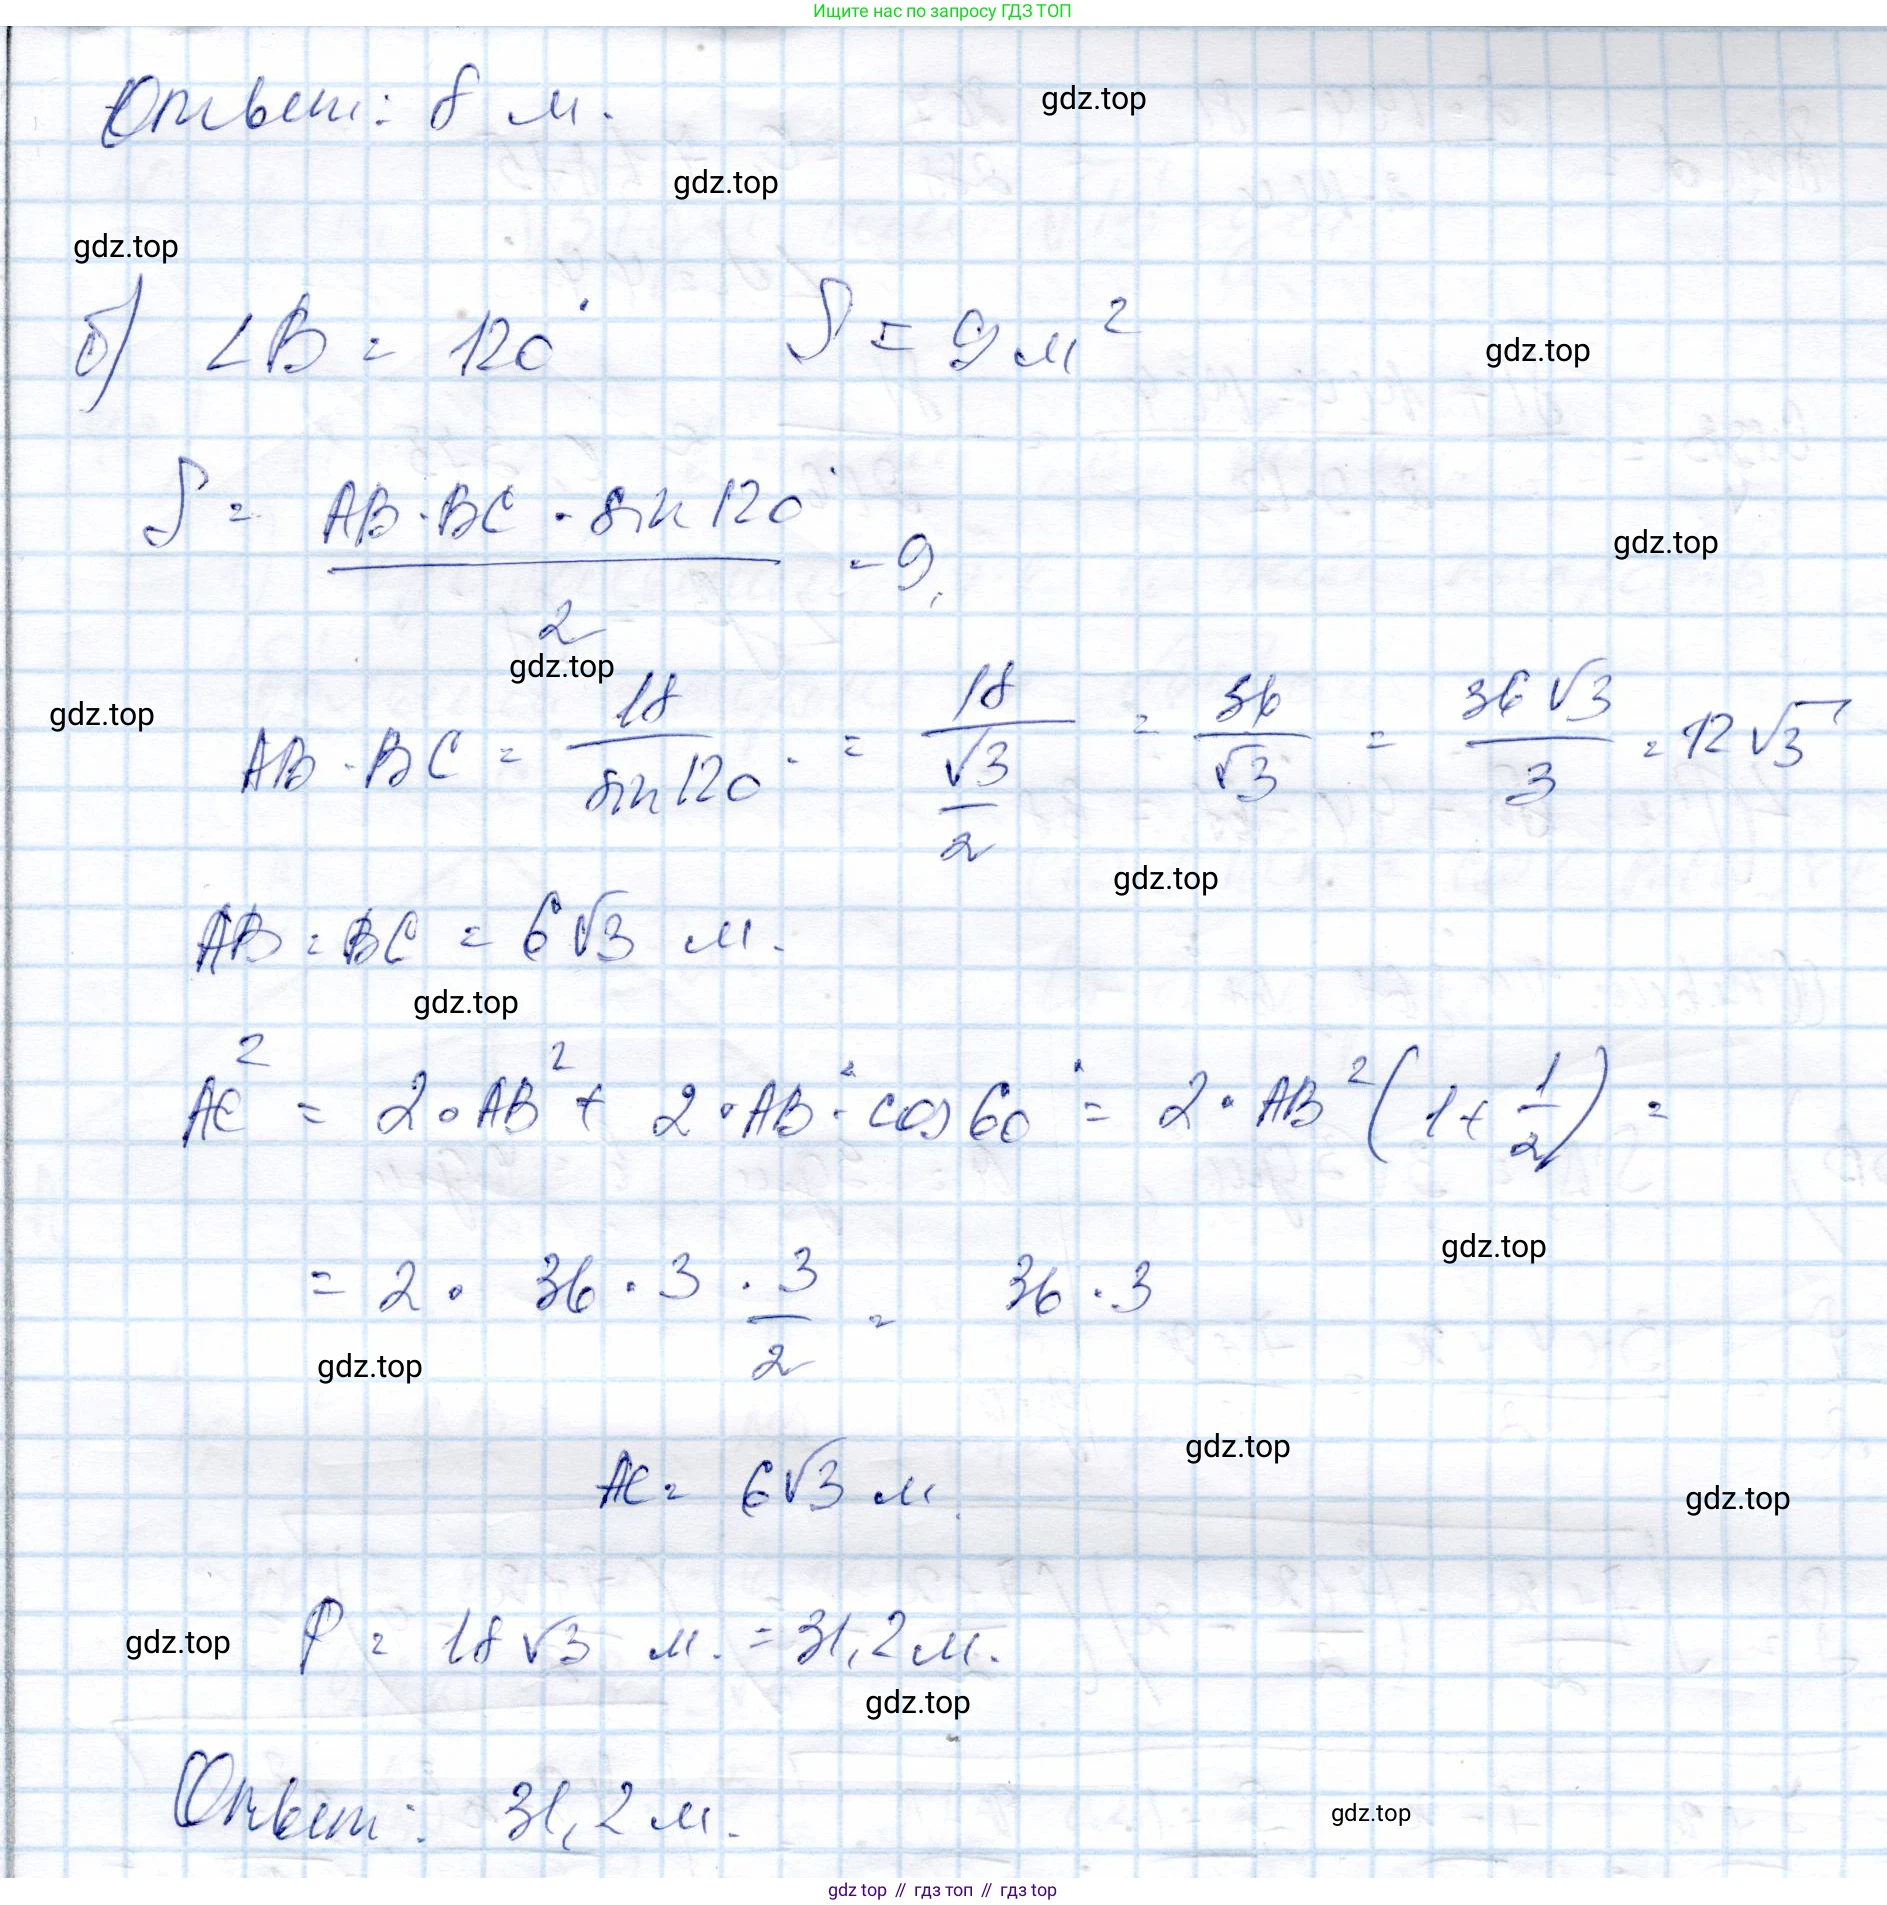 Ищите нас по запросу ГДЗ ТОП
Ответ: 8 м.
gdz.top
gdz.top
gdz.top
б) ∠B = 120° S = 9 м²
gdz.top
S = (AB · BC · sin 120°)/2 = 9,
gdz.top
gdz.top
gdz.top
AB · BC = 18/(sin 120°) = 18/(√3/2) = 36/√3 = 36√3/3 = 12√3
gdz.top
AB = BC = 6√3 м.
gdz.top
AC² = 2 · AB² + 2 · AB² · cos 60° = 2 · AB² (1 + 1/2) =
gdz.top
= 2 · 36 · 3 · 3/2 = 36 · 3
gdz.top
gdz.top
AC = 6√3 м.
gdz.top
gdz.top
P = 18√3 м. = 31,2 м.
gdz.top
Ответ: 31,2 м.
gdz.top
gdz top // гдз топ // гдз top